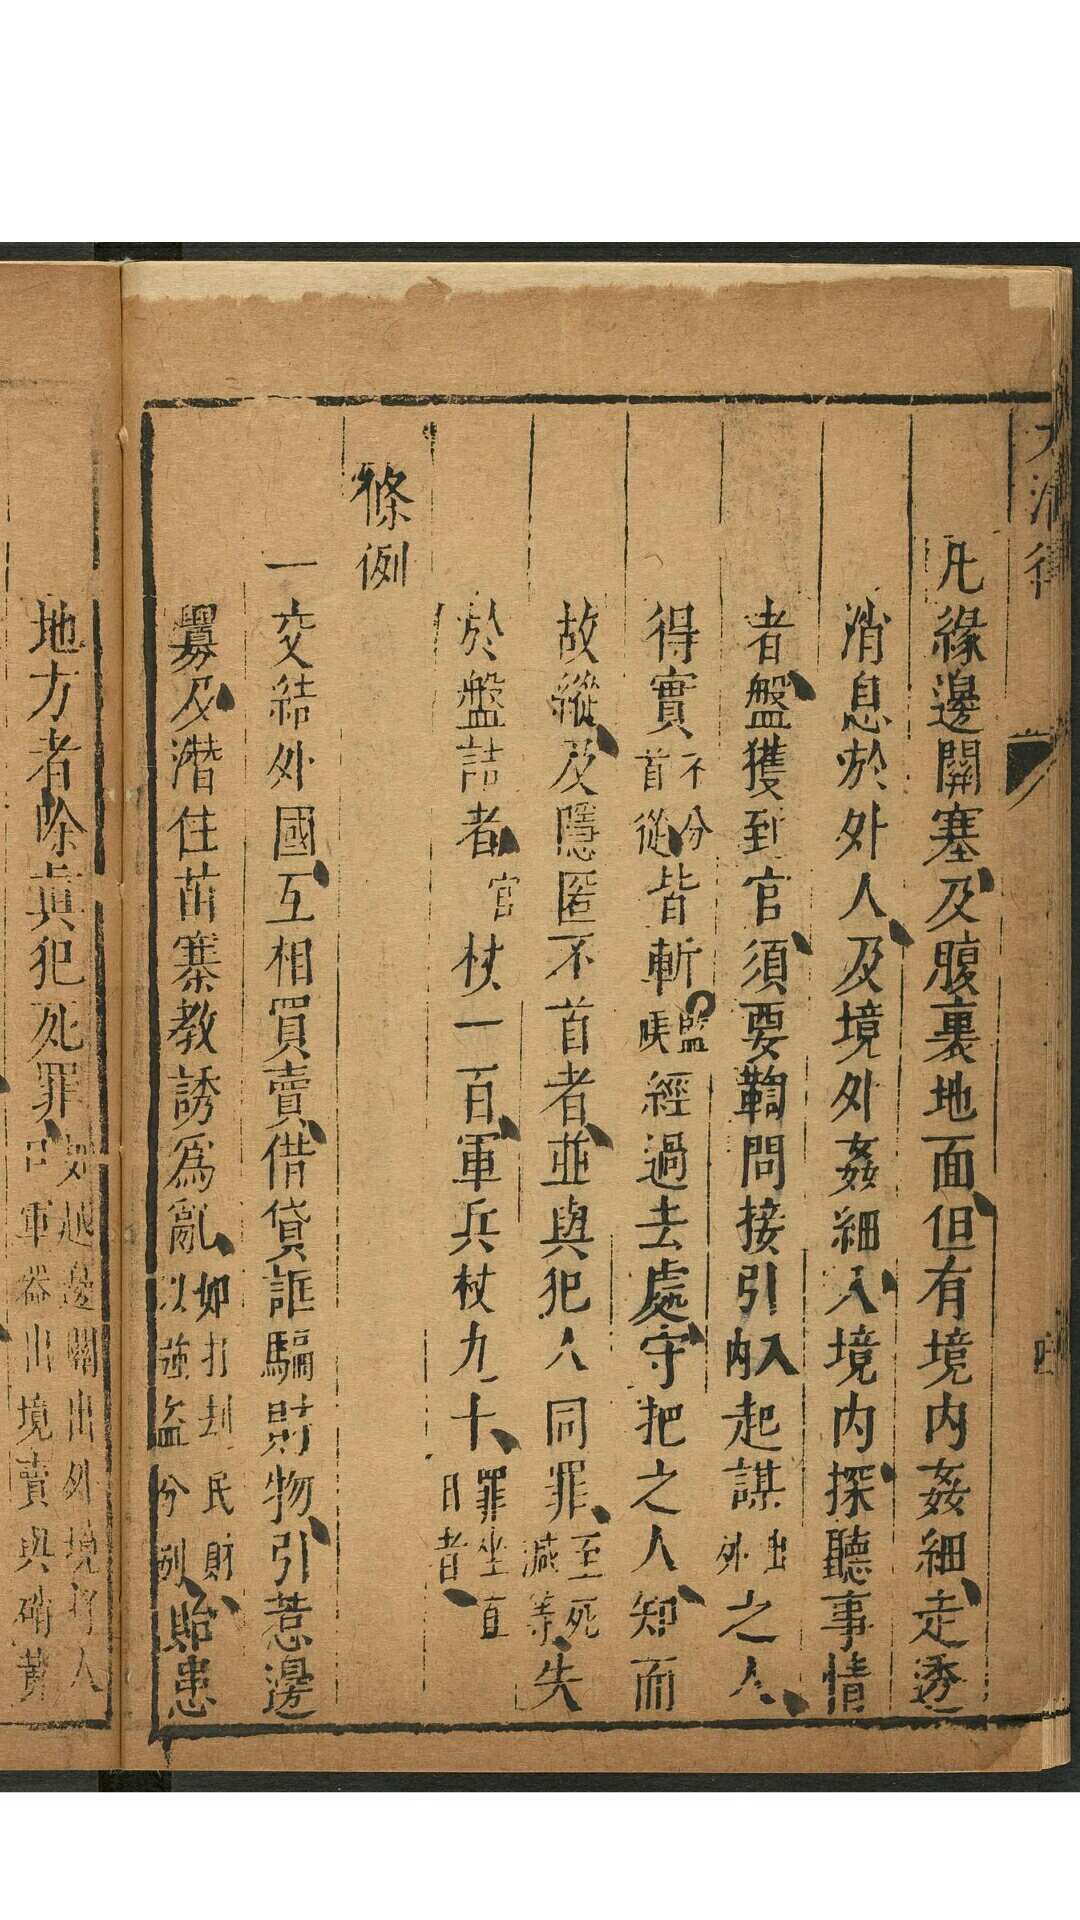 大清律
凡緣邊關塞及腹裏地面但有境內姦細走透
消息於外人及境外姦細入境內探聽事情
者盤獲到官須要鞫問接引入內起謀出外之人
得實不分首從皆斬監候經過去處守把之人知而
故縱及隱匿不首者並與犯人同罪至死減等失
於盤詰者官杖一百軍兵杖九十罪坐直日者
條例
一交結外國互相買賣借貸誆騙財物引惹邊
釁及潛住苗寨教誘為亂如打刦民財以強盜分別貽患
地方者除真犯死罪如越邊關出外境將人口軍器出境賣與硝黃